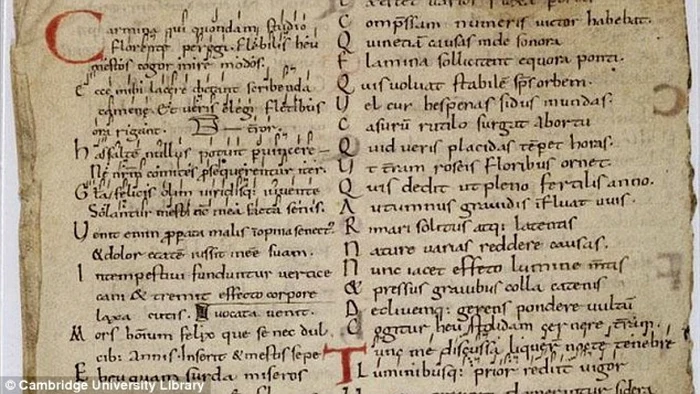 Carmina qui quondam studio
Florente peregi. Flebilis heu
mestos cogor inire modos.
Ecce mihi lacere dictant scribenda
camene. Et veris elegi fletibus
ora rigant.
has saltē nullus potuit pvincere
Ne nr̄m comites psequerentur iter.
Gta felicis olim viridisq; iuuente
Solantur mesti nc̄ mea facta senis.
Venit enim ppata malis inopina senect'
& dolor etatē iussit inēe suam.
Intempestivi funduntur vertice
cani & tremit effecto corpore
laxa cutis. Vocata venit.
Mors hom̄inum felix que se nec dul
cib; Annis. Inserit & mestis sepe
Eheu quam surda miseros
Compressam numeris victor habebat.
Quinetiā causas unde sonora
Flamina sollicitent equora ponti.
Quis voluat stabilē sp̄s orbem.
Vel cur hesperias sidus in undas.
Casurū rutilo surgat abortu
Quid veris placidas tēpet horas.
Vt t̄ram roseis floribus ornet.
Quis dedit ut pleno fertilis anno.
Autumnus gravidis īfluat uuis.
Rimari solitus atq; latentis
Nature varias reddere causas.
Nunc iacet effeto lumine m̄tis
& pressus gravibus colla catenis
Decliuemq; gerens pondere vultū
Cogitur heu stolidam c̄nere t̄ram.
Tunc me discussa liquer̄ nocte tenebre
Luminibusq; prior rediit vigor
© Cambridge University Library